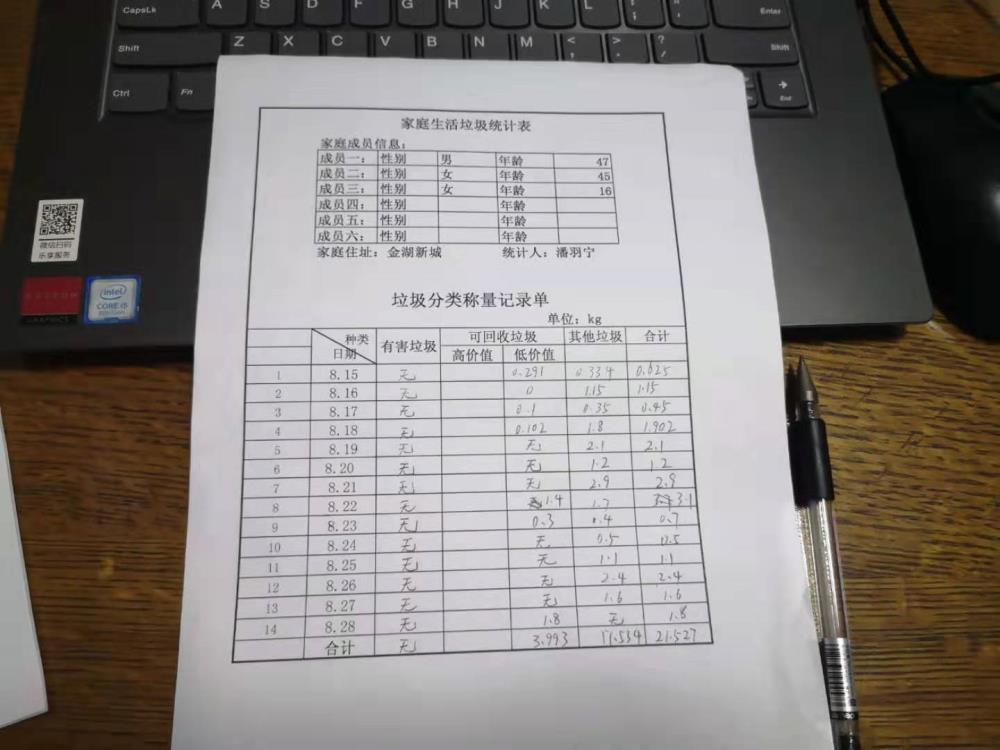 CapsLk A S D F G H J K L Enter
Shift Z X C V B N M < , > . ? / Shift
Ctrl Fn End
家庭生活垃圾统计表
家庭成员信息:
成员一: 性别 男 年龄 47
成员二: 性别 女 年龄 45
成员三: 性别 女 年龄 16
成员四: 性别 年龄
成员五: 性别 年龄
成员六: 性别 年龄
家庭住址: 金湖新城 统计人: 潘羽宁
微信扫码
乐享服务
RADEON
GRAPHICS
intel
CORE i5
8th Gen
垃圾分类称量记录单
单位: kg
种类 日期 有害垃圾 可回收垃圾 其他垃圾 合计
高价值 低价值
1 8.15 无 0.291 0.334 0.625
2 8.16 无 0 1.15 1.15
3 8.17 无 0.1 0.35 0.45
4 8.18 无 0.102 1.8 1.902
5 8.19 无 无 2.1 2.1
6 8.20 无 无 1.2 1.2
7 8.21 无 无 2.9 2.9
8 8.22 无 1.4 1.7 3.1
9 8.23 无 0.3 0.4 0.7
10 8.24 无 无 0.5 0.5
11 8.25 无 无 1.1 1.1
12 8.26 无 无 2.4 2.4
13 8.27 无 无 1.6 1.6
14 8.28 无 1.8 无 1.8
合计 无 3.993 17.534 21.527